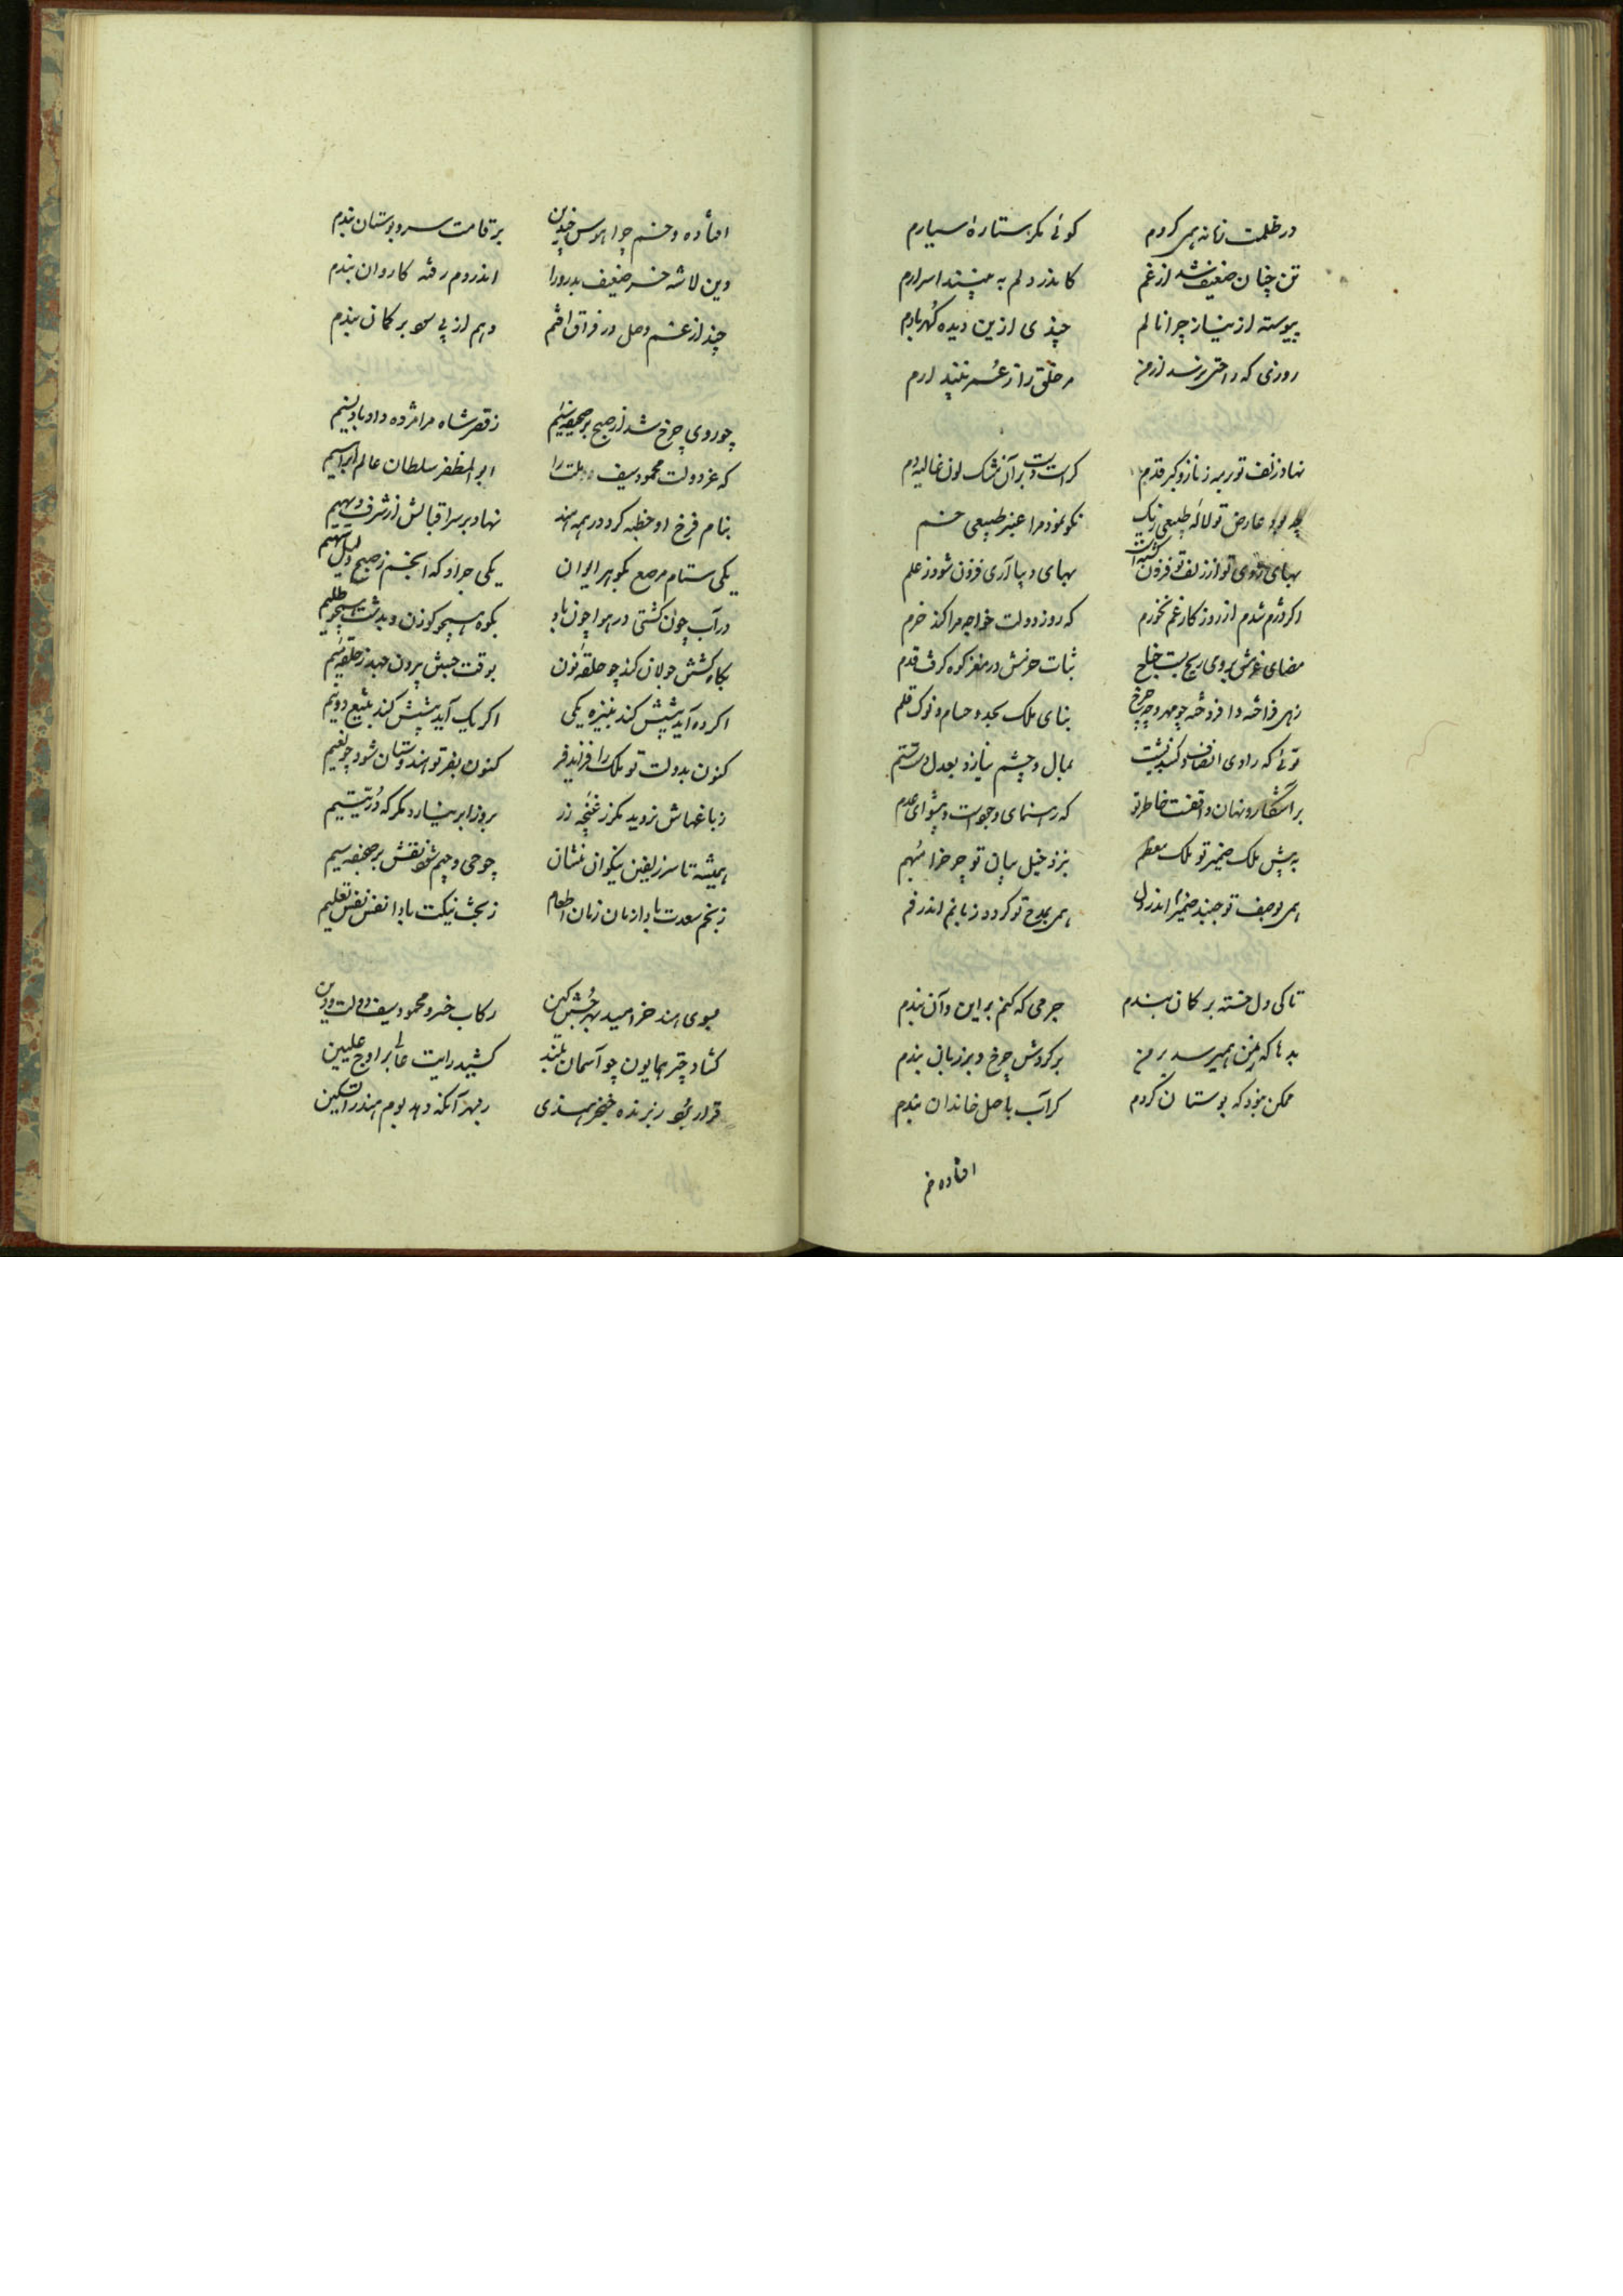 در ظلمت زمانه همی گردم گوئی مگر ستارهٔ سیارم
تن چنان ضعیف شد از غم کاندر دلم به بینند اسرارم
پیوسته از نیاز چرا نالم چندی ازین دیده گهر بارم
روزی که راحتی نرسد از من مر خلق را ز عمر نشمارم
نهاد زلف تو بر مه ز ناز و کبر قدم کراست دست بر آن مشک گون غالیه دم
عارض تو لاله طبیعی رنگ نکو نمود مرا عنبر طبیعی خم
بهای روی تو از زلف تو فزون گشته است بهای دیبا آری فزون شود ز علم
اگر دژم شدم از روزگار غم نخورم که روز دولت خواجه مرا کند خرم
مضای عزمش بر روی ریح بست خلج ثبات حزمش در مغز کوه کرد قدم
زهی فراخته و افروخته چو مهر و چو چرخ بنای ملک بجد و حسام و نوک قلم
توئی که رادی و انصاف بمال و چشم نیاز و بعدل پشت ستم
بر آشکار و نهان واقفست خاطر تو که رهنمای وجودست و پیشوای عدم
به پیش ملک ضمیر تو ملک معظم بنزد خیل بیان تو چرخ
همی بوصف تو جنبد ضمیرم اندر دل همی بمدح تو گردد زبانم اندر فم
تا کی دل خسته بر گمان بندم جرمی که کنم بر این و آن بندم
بدها که ز من همی رسد بر من بر گردش چرخ و بر زبان بندم
ممکن نبود که بوستان گردم گر آب باصل خاندان بندم
افتاده خم
افتاده و خم چرا هوس چندین بر قامت سرو بوستان بندم
وین لاشه خر ضعیف بدرو را اندر دم رفته کاروان بندم
چند از غم وصل در فراق افتم وهم از پی سود بر گمان بندم
چو روی چرخ شد از صبح چون صحیفه سیم ز قصر شاه مرا مژده داد باد نسیم
که عز دولت محمود سیف ملت را ابوالمظفر سلطان عالم ابراهیم
بنام فرخ او خطبه کرد در همه هند نهاد بر سر اقبالش از شرف دیهیم
یکی ستام مرصع بگوهر الوان یکی چرا و که انجم ز صبح ولیل بهیم
در آب چون کشتی در هوا چون باد بکوه همچو گوزن و بدشت همچو ظلیم
بگاه کشش جولان کند چو حلقه نون بوقت جنبش بیرون جهد ز حلقه میم
اگر ده آید پیشش کند بنیزه یکی اگر یک آید پیشش کند بتیغ دو نیم
کنون بدولت تو ملک را فزاید فر کنون بفر تو هندوستان شود چو نعیم
ز باغهاش نروید مگر ز غنچه زر بروز ابر نبارد مگر که در یتیم
همیشه تا سر زلفین نیکوان نشان چو حی و جیم شود نقش بر صحیفه سیم
ز نجم سعدت باد از زمان زمان اطعام ز بخت نیکت باد نفس نفس تعلیم
بسوی هند خرامید بهر جستن کین رکاب خسرو محمود سیف دولت و دین
گشاد چتر همایون چو آسمان بلند کشید رایت عالی بر اوج علیین
قرار برنده خنجر هندی بهر آنکه دهد بوم هند را تسکین